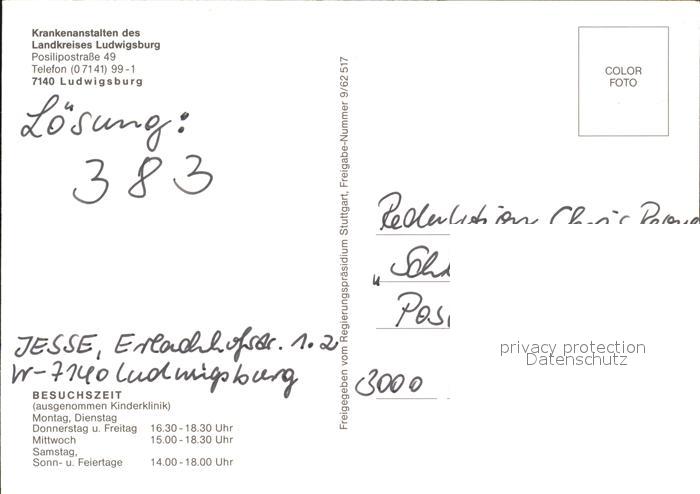 Krankenanstalten des
Landkreises Ludwigsburg
Posilipostraße 49
Telefon (07141) 99-1
7140 Ludwigsburg
Lösung:
383
JESSE, Erlachhofstr. 1.2
W-7140 Ludwigsburg
BESUCHSZEIT
(ausgenommen Kinderklinik)
Montag, Dienstag
Donnerstag u. Freitag 16.30-18.30 Uhr
Mittwoch 15.00-18.30 Uhr
Samstag,
Sonn- u. Feiertage 14.00-18.00 Uhr
Freigegeben vom Regierungspräsidium Stuttgart, Freigabe-Nummer 9/62 517
COLOR
FOTO
3000
privacy protection
Datenschutz